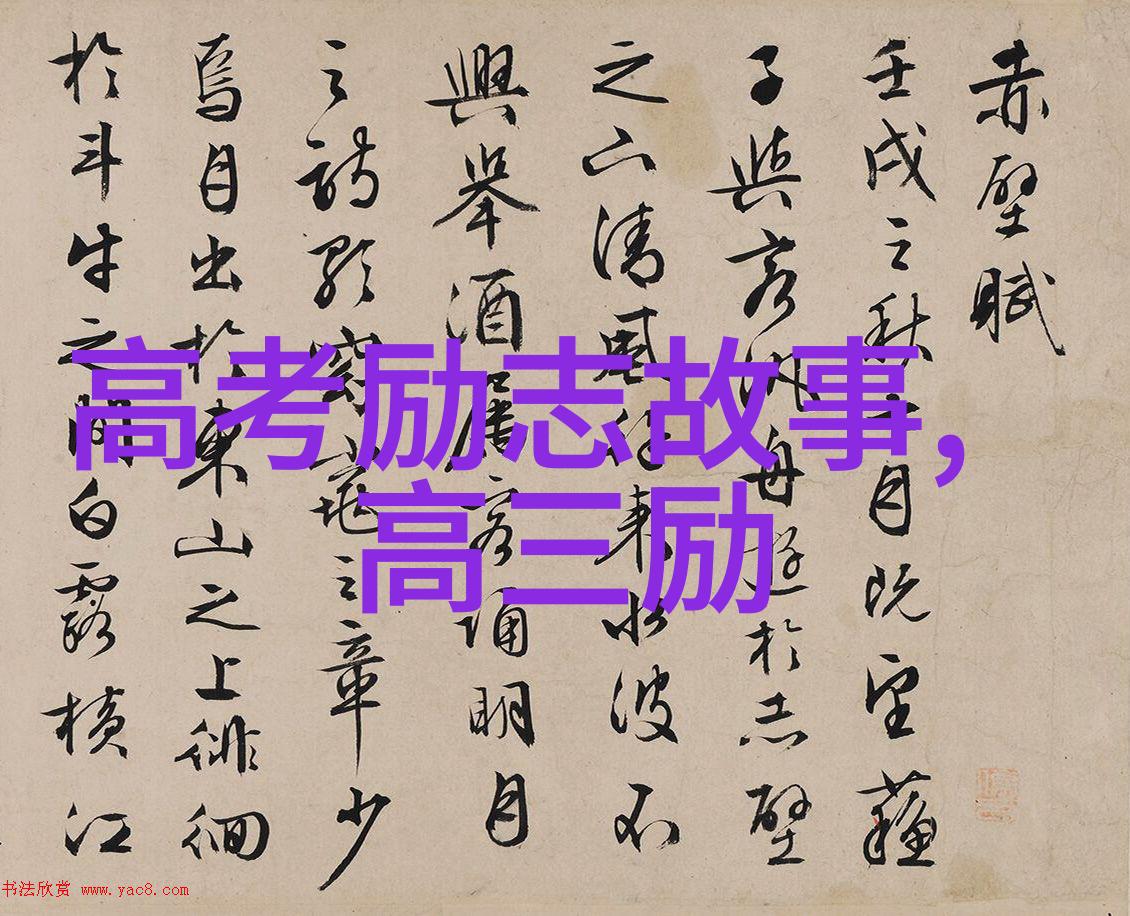 赤壁賦
壬戌之秋七月既望蘇
子與客泛舟遊於赤壁
之下清風徐來水波不
興舉酒屬客誦明月
之詩歌窈窕之章少
焉月出於東山之上徘徊
於斗牛之間白露橫江
高考励志故事,
高三励
书法欣赏 www.yac8.com